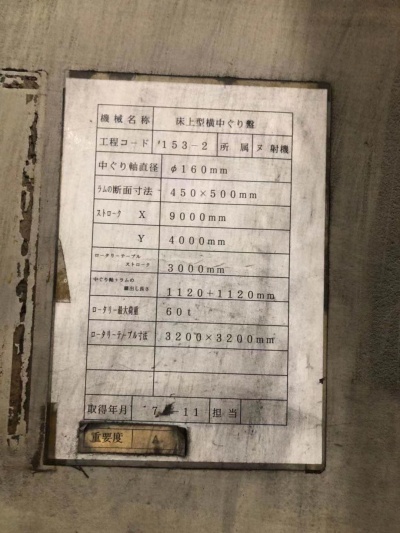 機械名称 床上型横中ぐり盤
工程コード 153-2 所属 ヌ射機
中ぐり軸直径 φ160mm
ラムの断面寸法 450×500mm
ストローク X 9000mm
Y 4000mm
ロータリーテーブル
ストローク 3000mm
中ぐり軸+ラムの
繰出し長さ 1120+1120mm
ロータリー最大荷重 60t
ロータリーテーブル寸法 3200×3200mm
取得年月 7 -11 担当
重要度 A